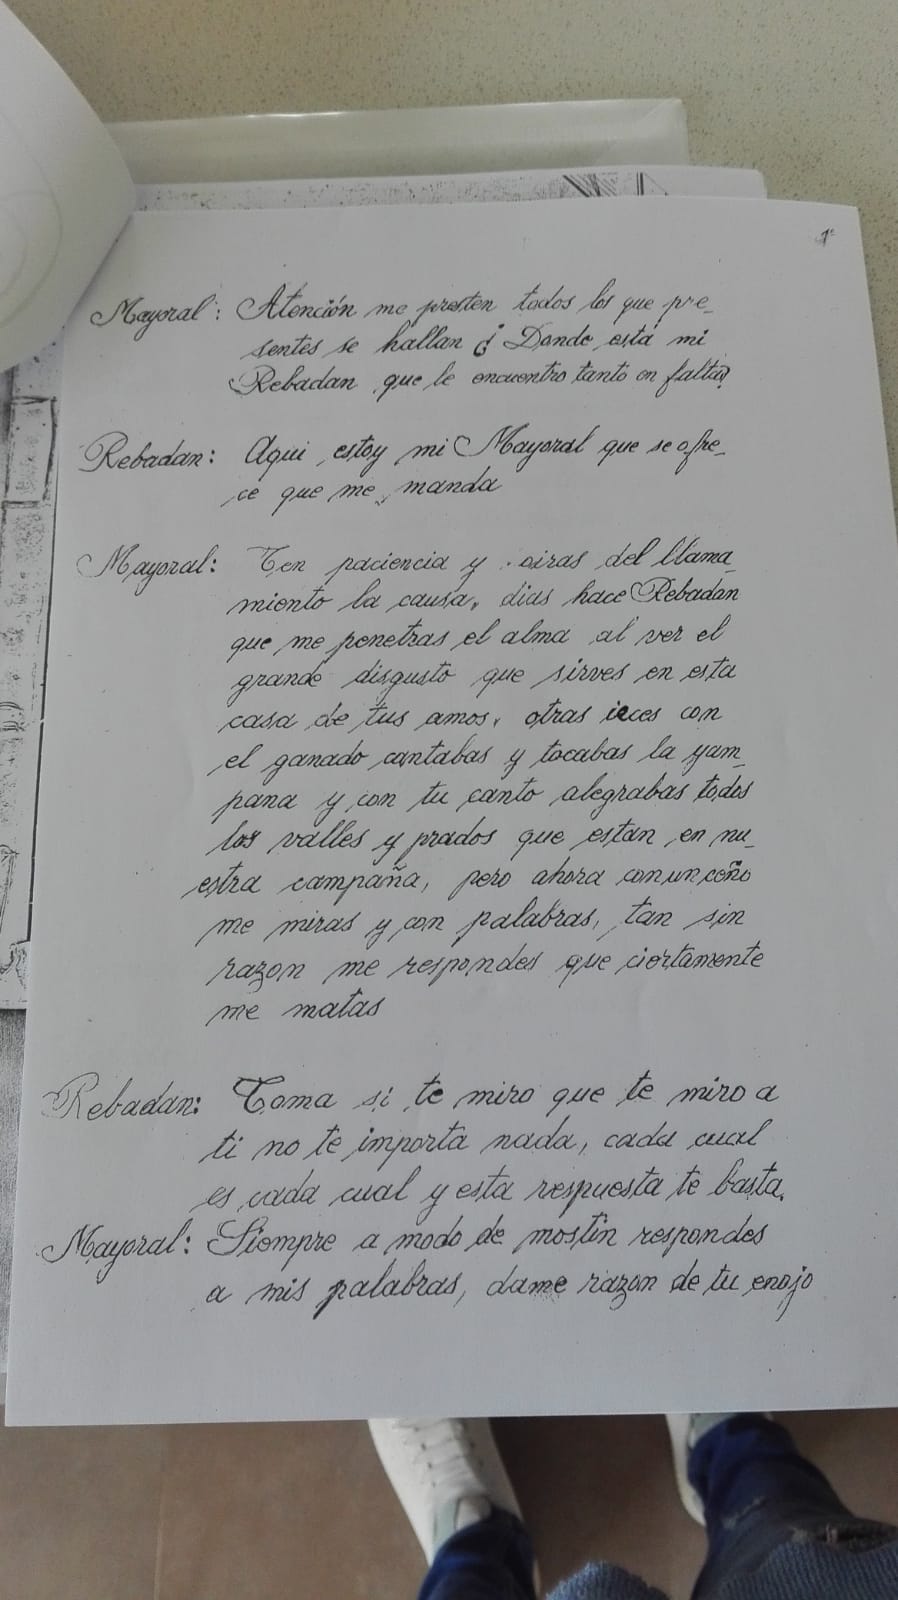 1º
Mayoral: Atención me presten todos los que pre_
sentes se hallan ¿ Donde está mi
Rebadan que le encuentro tanto en falta?
Rebadan: Aqui estoy mi Mayoral que se ofre_
ce que me manda
Mayoral: Ten paciencia y oiras del llama_
miento la causa, dias hace Rebadan
que me penetras el alma al ver el
grande disgusto que sirves en esta
casa de tus amos, otras ieces con
el ganado cantabas y tocabas la yam_
pana y con tu canto alegrabas todos
los valles y prados que estan en nu_
estra campaña, pero ahora con un ceño
me miras y con palabras, tan sin
razon me respondes que ciertamente
me matas
Rebadan: Toma si te miro que te miro a
ti no te importa nada, cada cual
es cada cual y esta respuesta te basta.
Mayoral: Siempre a modo de mostin respondes
a mis palabras, dame razon de tu enojo